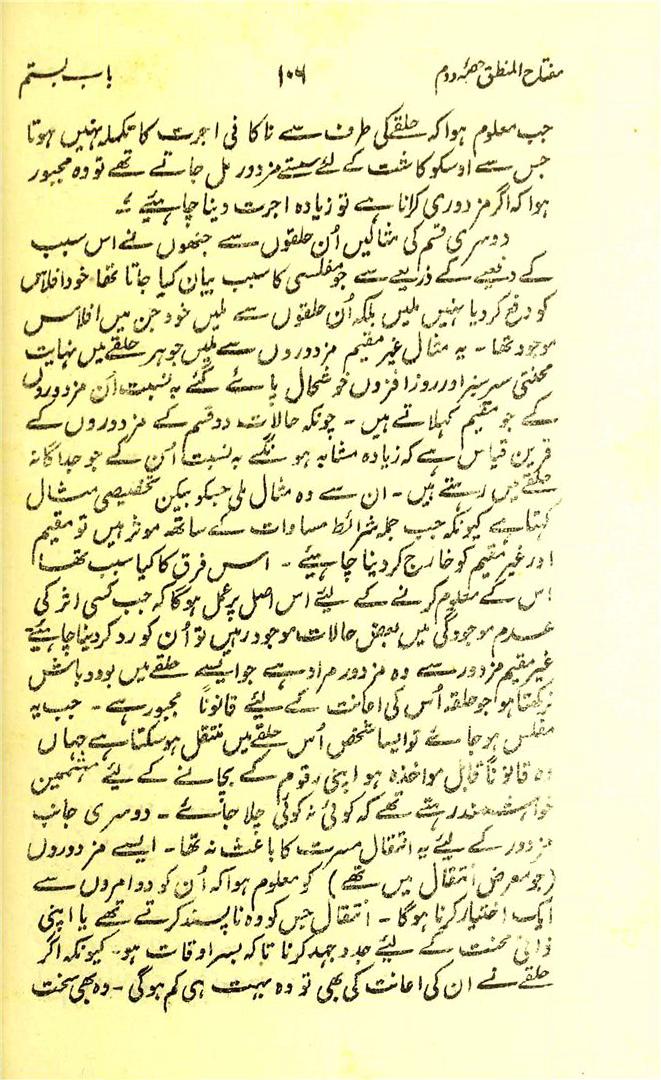 مفتاح المنطق حصہ دوم ۱۰۶ باب بستم
جب معلوم ہوا کہ حلقے کی طرف سے ناکافی اجرت کا تکملہ نہیں ہوتا
جس سے اوسکو کاشت کے لئے سستے مزدور مل جاتے تھے تو وہ مجبور
ہوا کہ اگر مزدوری کرانا ہے تو زیادہ اجرت دینا چاہئیے ۔
دوسری قسم کی مثالیں اُن حلقوں سے جنھوں نے اس سبب
کے دفعیے کے ذریعے سے جو مفلسی کا سبب بیان کیا جاتا تھا خود افلاس
کو دفع کر دیا نہیں ملیں بلکہ اُن حلقوں سے ملیں خود جن میں افلاس
موجود تھا ۔ یہ مثال غیر مقیم مزدوروں سے ملیں جو ہر حلقے میں نہایت
محنتی سرسبز اور روز افزوں خوشحال پائے گئے بہ نسبت اُن مزدوروں
کے جو مقیم کہلاتے ہیں ۔ چونکہ حالات دو قسم کے مزدوروں کے
قرین قیاس ہے کہ زیادہ مشابہ ہونگے بہ نسبت اُن کے جو جداگانہ
حلقے میں رہتے ہیں ۔ ان سے وہ مثال ملی جسکو بیکن تخصیصی مثال
کہتا ہے کیونکہ جب جملہ شرائط مساوات کے ساتھ موثر ہیں تو مقیم
اور غیر مقیم کو خارج کر دینا چاہئیے ۔ اس فرق کا کیا سبب تھا
اس کے معلوم کرنے کے لیئے اس اصل پر عمل ہوگا کہ جب کسی اثر کی
عدم موجودگی میں بعض حالات موجود رہیں تو اُن کو رد کر دینا چاہئیے
غیر مقیم مزدور سے وہ مزدور مراد ہے جو ایسے حلقے میں بود و باش
رکھتا ہو جو حلقہ اُس کی اعانت کے لیئے قانوناً مجبور ہے ۔ جب یہ
مفلس ہو جائے تو ایسا شخص اُس حلقے میں منتقل ہو سکتا ہے جہاں
وہ قانوناً قابل مواخذہ ہو اپنی رقوم کے بچانے کے لیئے مہتممین
خواہشمند رہتے تھے کہ کوئی نہ کوئی چلا جائے ۔ دوسری جانب
مزدور کے لیئے یہ انتقال مسرت کا باعث نہ تھا ۔ ایسے مزدوروں
(جو معرض انتقال میں تھے) کو معلوم ہوا کہ اُن کو دو امروں سے
ایک اختیار کرنا ہوگا ۔ انتقال جس کو وہ ناپسند کرتے تھے یا اپنی
ذاتی محنت کے لیئے جد و جہد کرنا تاکہ بسر اوقات ہو ۔ کیونکہ اگر
حلقے نے ان کی اعانت کی بھی تو وہ بہت ہی کم ہوگی ۔ وہ بھی سخت